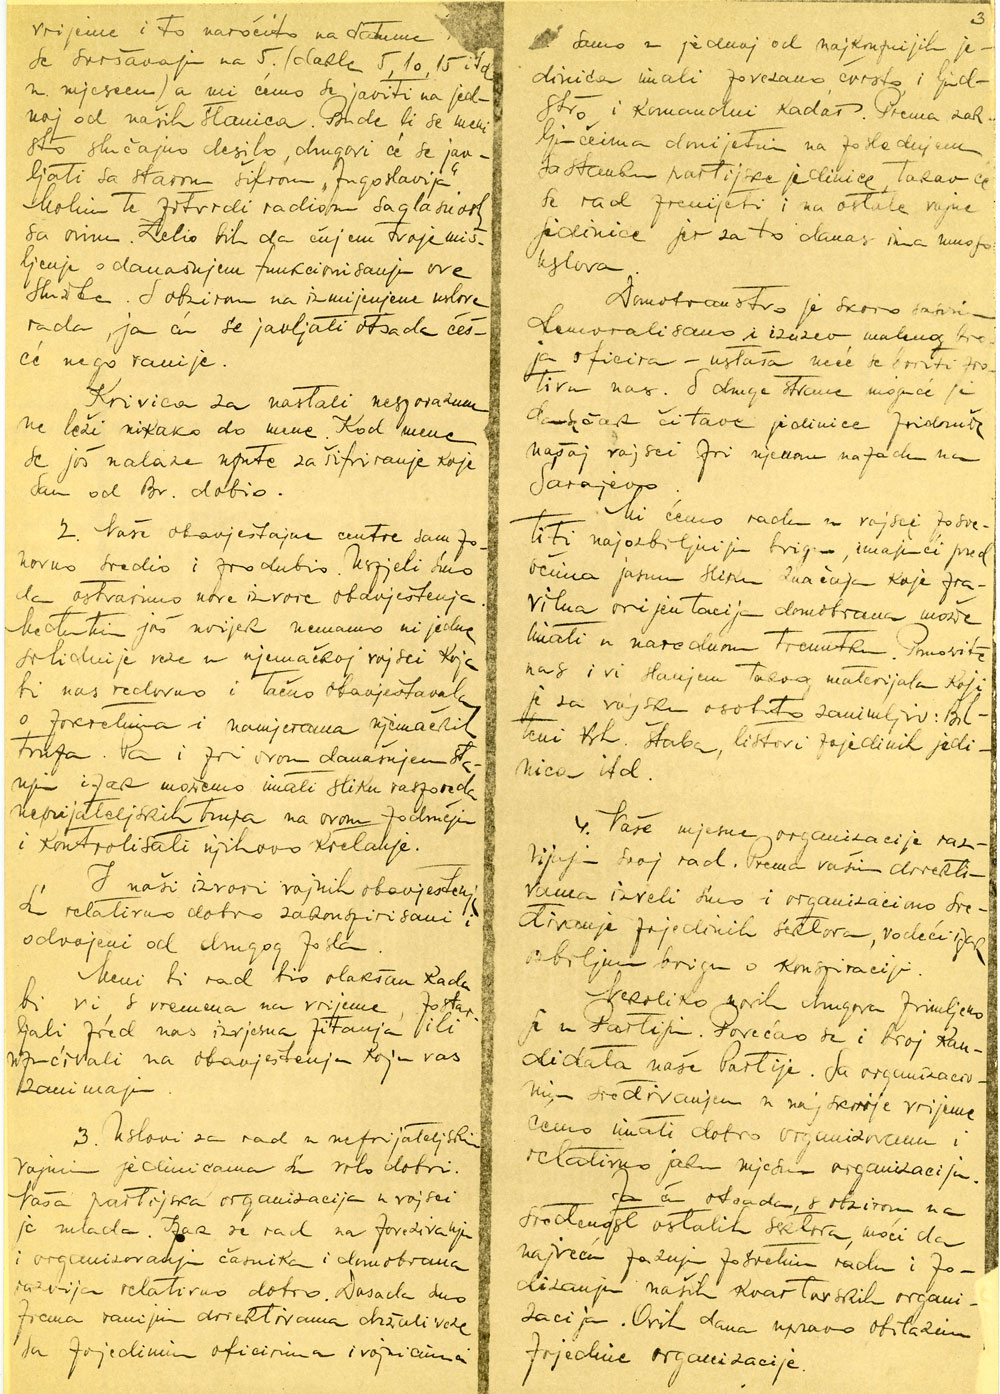 vrijeme i to naročito na datume
se svršavaju na 5. (dakle 5, 10, 15 itd
u mjesecu) a mi ćemo se javiti na jed-
noj od naših stanica. Bude li se meni
što slučajno desilo, drugovi će se jav-
ljati sa starom šifrom „Jugoslavija“.
Molim te potvrdi radiom saglasnost
sa ovim. Želio bih da čujem tvoje miš-
ljenje o današnjem funkcionisanju ove
službe. S obzirom na izmijenjene uslove
rada, ja ću se javljati otsada češ-
će nego ranije.
Krivica za nastali nesporazum
ne leži nikako do mene. Kod mene
se još nalaze upute za šifriranje koje
sam od Br. dobio.
2. Naše obavještajne centre sam po-
novno sredio i produbio. Uspjeli smo
da ostvarimo nove izvore obavještenja.
Međutim još uvijek nemamo ni jedne
solidnije veze u njemačkoj vojsci koja
bi nas redovno i tačno obavještavala
o pokretima i namjerama njemačkih
trupa. Pa i pri ovom današnjem sta-
nju ipak možemo imati sliku rasporeda
neprijateljskih trupa na ovom području
i kontrolisati njihovo kretanje.
I naši izvori vojnih obavještenja
su relativno dobro zakonspirisani i
odvojeni od drugog posla.
Meni bi rad bio olakšan kada
bi vi s vremena na vrijeme, postav-
ljali pred nas izvjesna pitanja ili
upućivali na obavještenja koja vas
zanimaju.
3. Uslovi za rad u neprijateljskim
vojnim jedinicama su vrlo dobri.
Naša partijska organizacija u vojsci
je mlada. Ipak se rad na povezivanju
i organizovanju časnika i domobrana
razvija relativno dobro. Dosada smo
prema ranijim direktivama držali veze
sa pojedinim oficirima i vojnicima i
3
samo u jednoj od najkrupnijih je-
dinica imali povezano čvrsto i ljud-
stvo i komandni kadar. Prema zak-
ljučcima donijetim na poslednjem
sastanku partijske jedinice, takav će
se rad prenijeti i na ostale vojne
jedinice jer za to danas ima mnogo
uslova.
Domobranstvo je skoro sasvim
demoralisano i izuzev malenog bro-
ja oficira – ustaša neće se boriti pro-
tiv nas. S druge strane moguće je
da čak čitave jedinice pridruže
našoj vojsci pri njenom napadu na
Sarajevo.
Mi ćemo radu u vojsci posve-
titi najozbiljniju brigu, imajući pred
očima jasnu sliku značaja koje pra-
vilna orijentacija domobrana može
imati u narednom trenutku. Pomozite
nas i vi slanjem takog materijala koji
je za vojsku osobito zanimljiv: Bil-
teni Vrh. Štaba, listovi pojedinih jedi-
nica itd.
4. Naše mjesne organizacije raz-
vijaju svoj rad. Prema vašim direkti-
vama izveli smo i organizaciono sre-
đivanje pojedinih sektora, vodeći ipak
ozbiljnu brigu o konspiraciji.
Nekoliko novih drugova primljeno
je u Partiju. Povećao se i broj kan-
didata naše Partije. Sa organizacio-
nim sređivanjem u najskorije vrijeme
ćemo imati dobro organizovanu i
relativno jaku mjesnu organizaciju.
Ja ću otsada, s obzirom na
sređenost ostalih sektora, moći da
najveću pažnju posvetim radu i po-
dizanju naših kvartovskih organi-
zacija. Ovih dana upravo obilazim
pojedine organizacije.